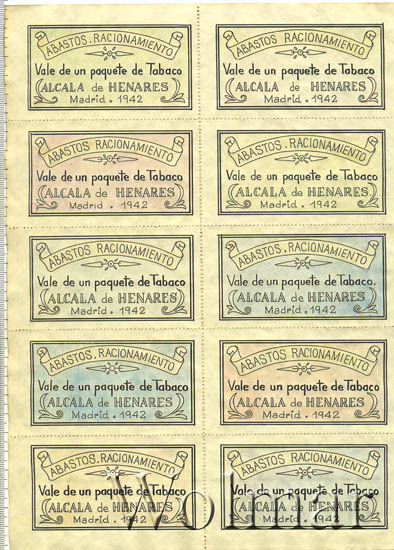 ABASTOS.RACIONAMIENTO
Vale de un paquete de Tabaco
ALCALA de HENARES
Madrid. 1942
ABASTOS.RACIONAMIENTO
Vale de un paquete de Tabaco
ALCALA de HENARES
Madrid. 1942
ABASTOS RACIONAMIENTO
Vale de un paquete de Tabaco
ALCALA de HENARES
Madrid. 1942
ABASTOS RACIONAMIENTO
Vale de un paquete de Tabaco
ALCALA de HENARES
Madrid. 1942
ABASTOS RACIONAMIENTO
Vale de un paquete de Tabaco
ALCALA de HENARES
Madrid. 1942
ABASTOS.RACIONAMIENTO
Vale de un paquete de Tabaco.
ALCALA de HENARES
Madrid. 1942
ABASTOS.RACIONAMIENTO
Vale de un paquete de Tabaco
ALCALA de HENARES
Madrid. 1942
ABASTOS RACIONAMIENTO
Vale de un paquete de Tabaco
ALCALA de HENARES
Madrid. 1942
ABASTOS.RACIONAMIENTO
Vale de un paquete de Tabaco
ALCALA de HENARES
Madrid. 1942
ABASTOS RACIONAMIENTO
Vale de un paquete de Tabaco
ALCALA de HENARES
Madrid. 1942
Wolmar